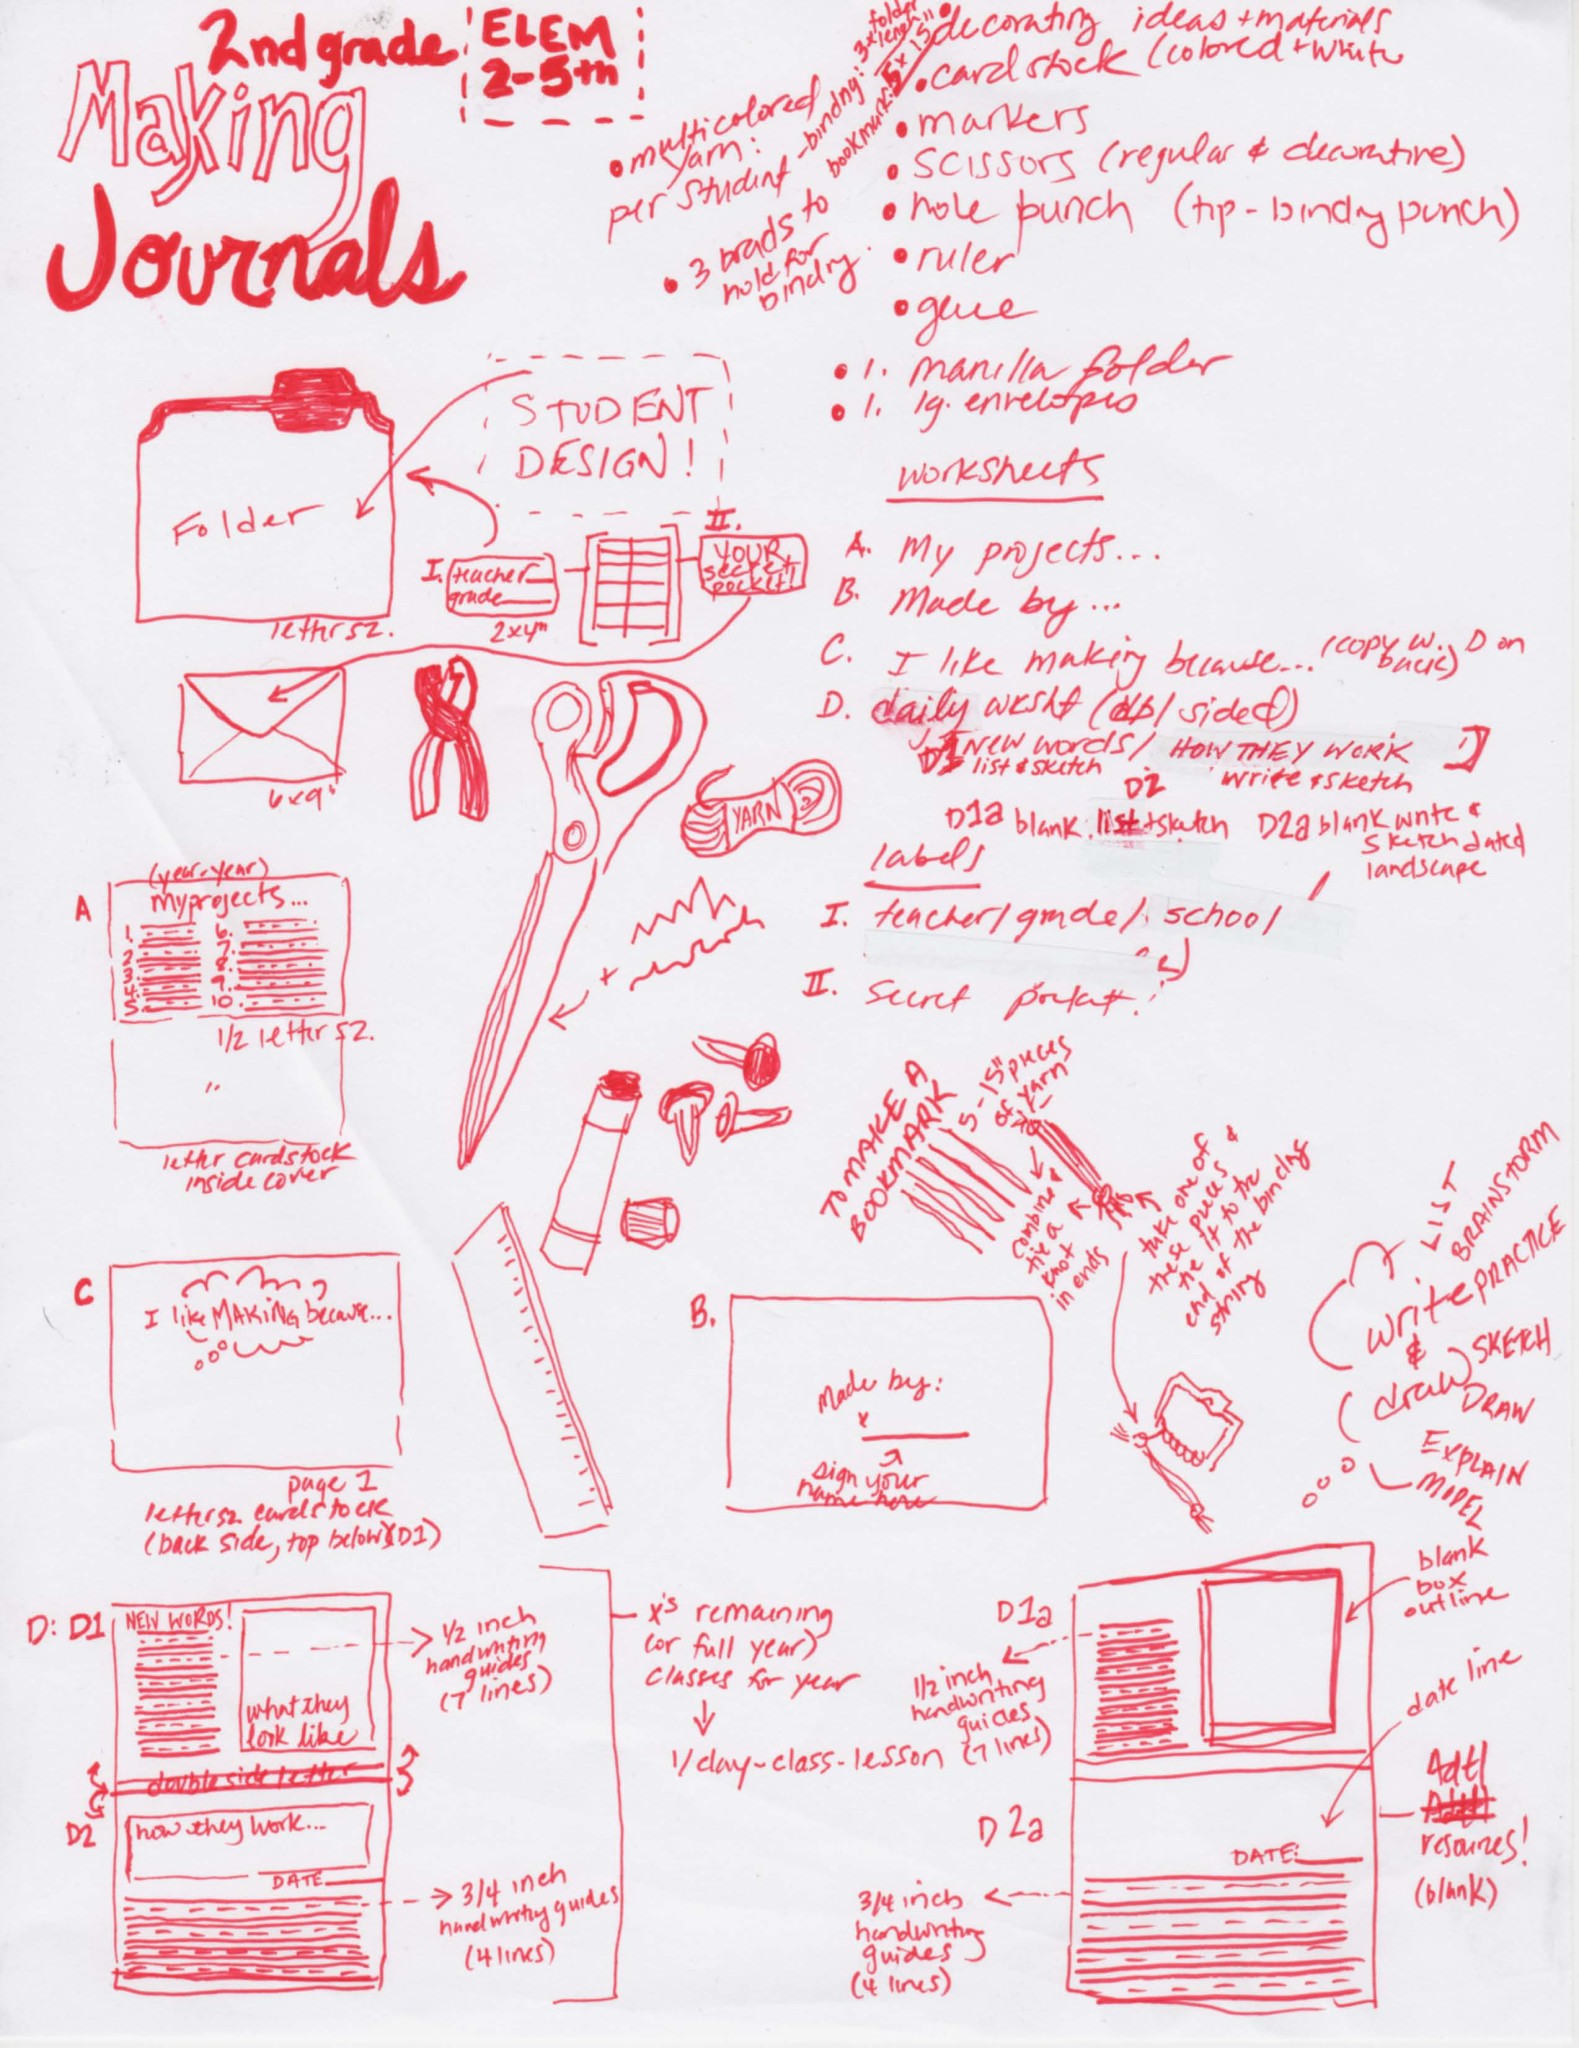 2nd grade
ELEM
2-5th
Making
Journals
• decorating ideas + materials
• cardstock (colored + white
• markers
• scissors (regular & decorative)
• hole punch (tip - binding punch)
• ruler
• glue
• 1. manilla folder
• 1. lg. envelopes
• multicolored
yarn:
per student - binding: 3x folder length
bookmark: 5x 15"
• 3 brads to
hold for
binding.
STUDENT
DESIGN!
Folder
letter sz.
I. teacher
grade
2x4"
II.
YOUR
secret
pocket!
6x9"
YARN
worksheets
A. My projects...
B. Made by...
C. I like making because... (copy w. D on
back)
D. daily wksht (dbl sided)
D1 new words/ HOW THEY WORK
list & sketch
D2 write & sketch
D1a blank list + sketch
D2a blank write &
sketch dated
landscape
labels
I. teacher/grade/school/
II. secret pocket!
A
(year-year)
my projects...
1. 6.
2. 7.
3. 8.
4. 9.
5. 10.
1/2 letter sz.
letter cardstock
inside cover
+
TO MAKE A
BOOKMARK
5-15" pieces
of yarn
combine &
tie a
knot
in ends
take one of
these pieces &
tie it to the
end of the binding
string
C
I like MAKING because...
page 1
letter sz cardstock
(back side, top below D1)
B.
Made by:
x
sign your
name here
LIST
BRAINSTORM
write PRACTICE
&
draw SKETCH
DRAW
EXPLAIN
MODEL
D: D1
NEW WORDS!
what they
look like
1/2 inch
handwriting
guides
(7 lines)
double side letter
D2
how they work...
DATE
3/4 inch
handwriting guides
(4 lines)
x's remaining
(or full year)
classes for year
1/day-class-lesson
D1a
1/2 inch
handwriting
guides
(7 lines)
blank
box
outline
date line
D2a
DATE:
3/4 inch
handwriting
guides
(4 lines)
Adtl
resources!
(blank)